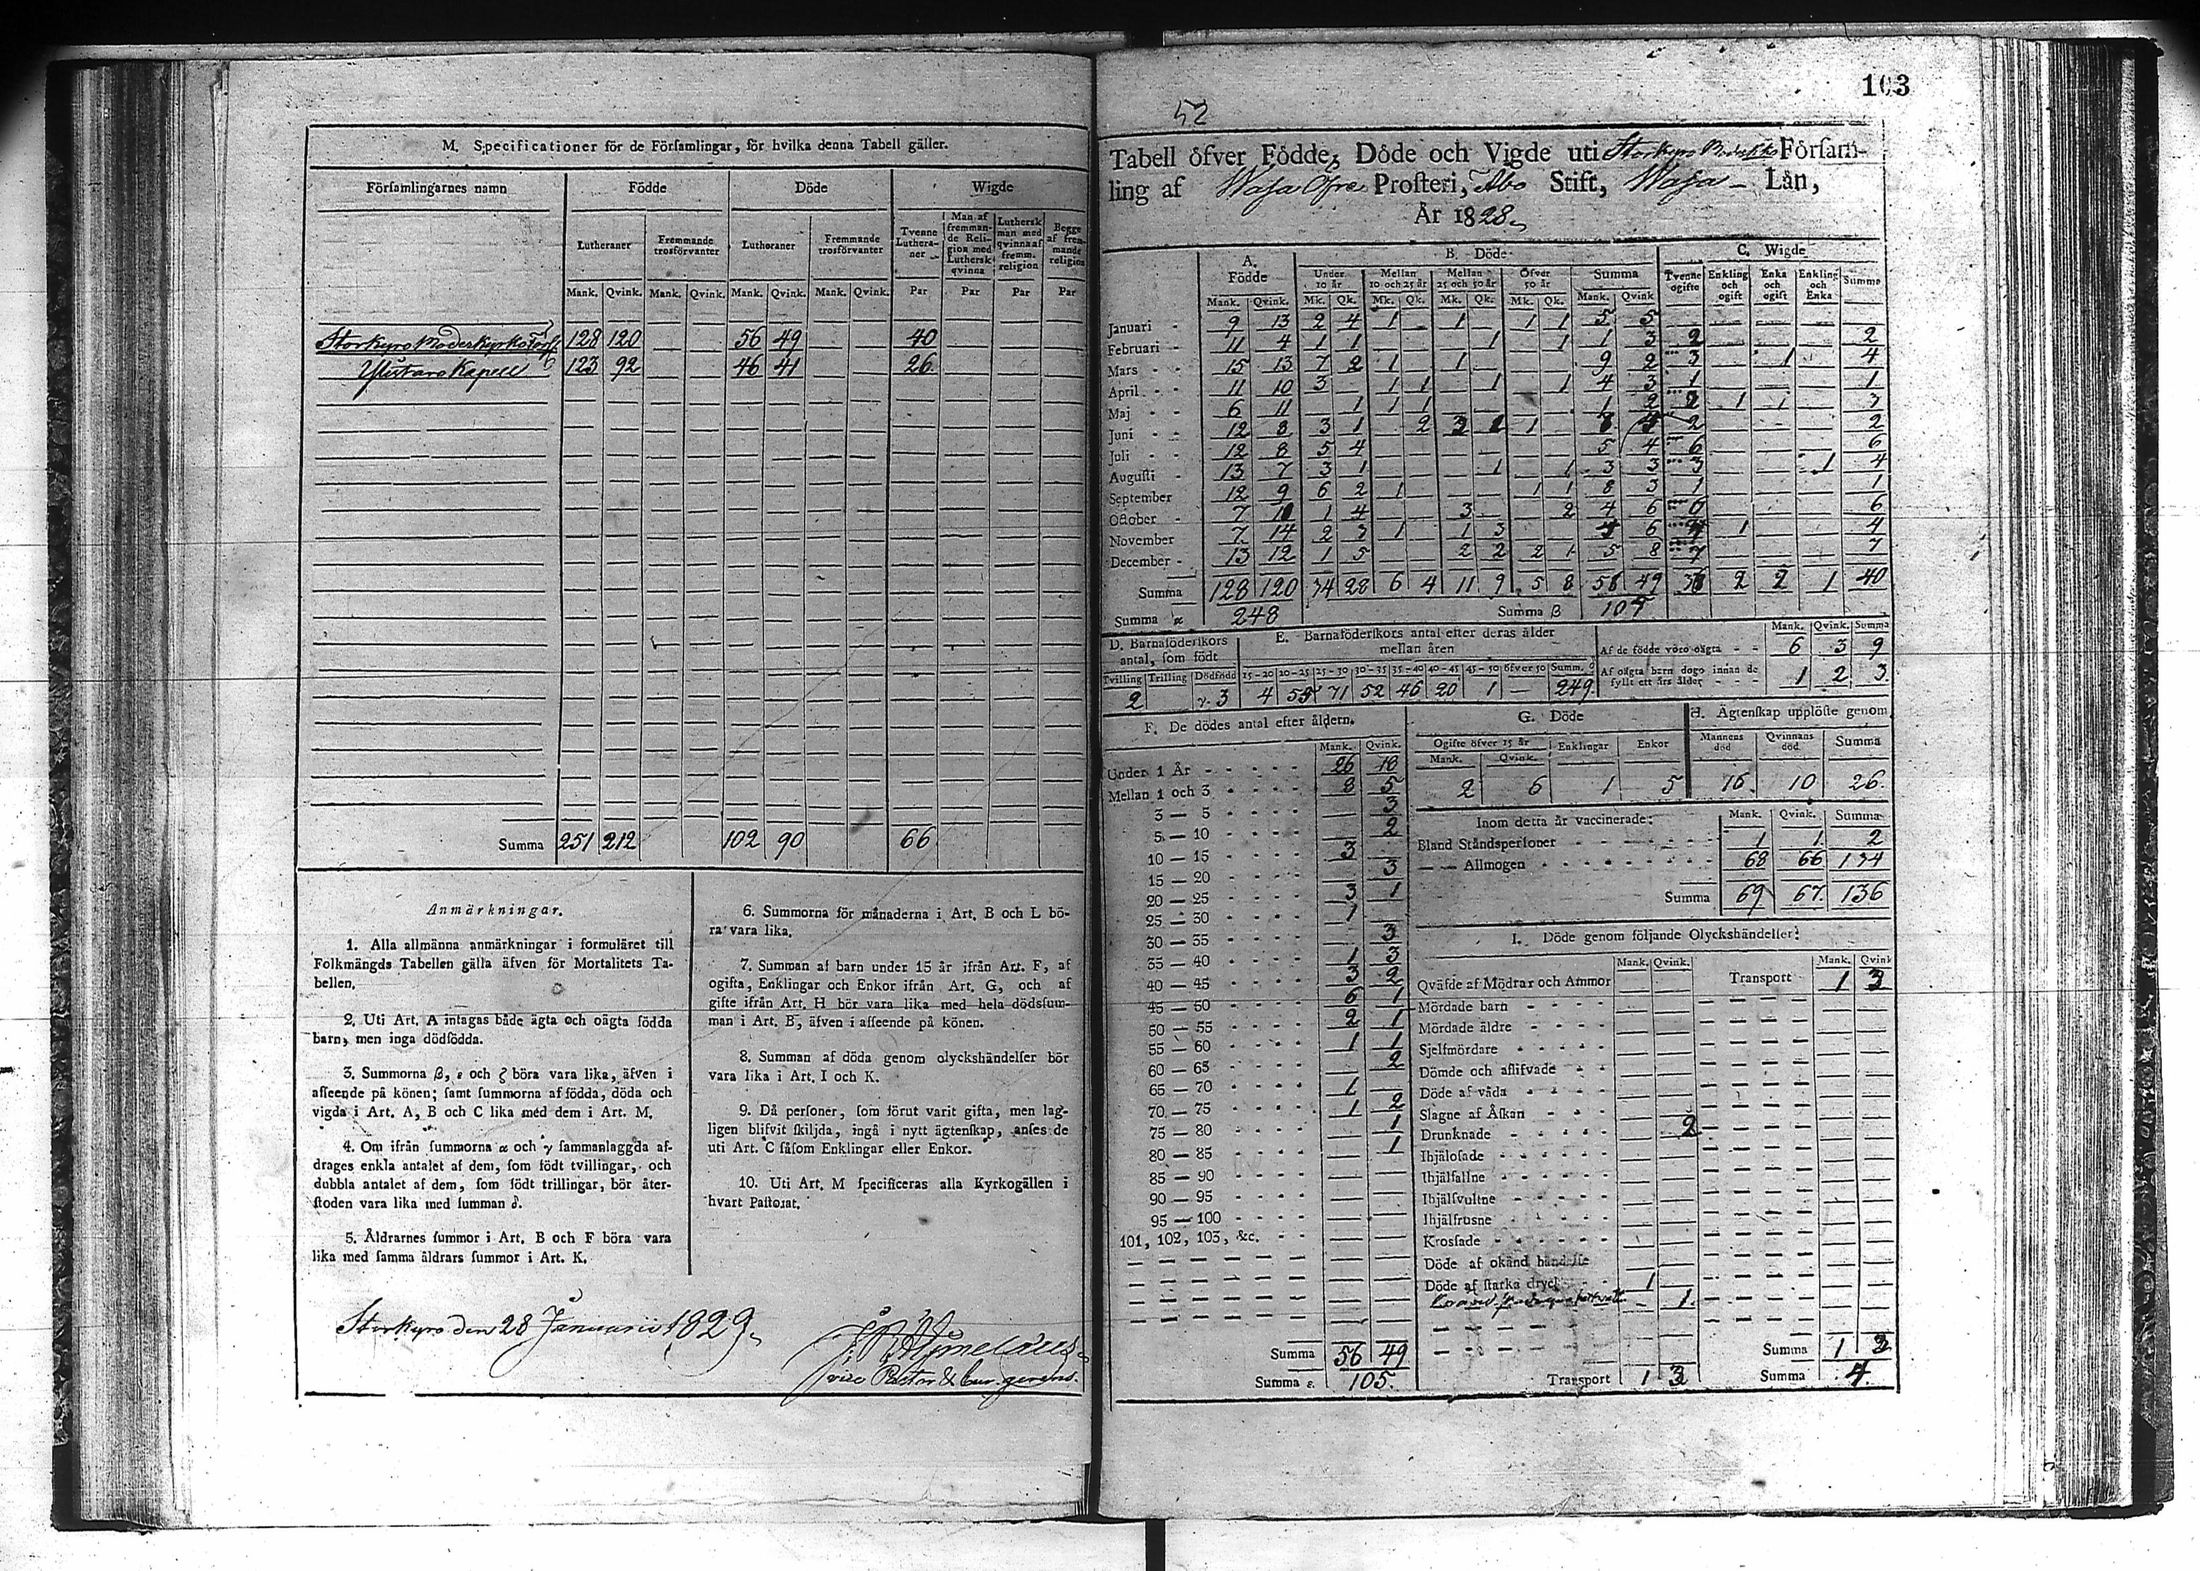 M. Specificationer för de Församlingar, för hvilka denna Tabell gäller.
Församlingarnes namn Födde Döde Wigde
Lutheraner Fremmande trosförvanter Lutheraner Fremmande trosförvanter Tvenne Lutheraner Man af fremmande Religion med Luthersk qvinna Luthersk man med qvinna af fremm. religion Begge af fremmande religion
Mank. Qvink. Mank. Qvink. Mank. Qvink. Mank. Qvink. Par Par Par Par
Storkyro Moderkyrko 128 120 56 49 40
Ylistaro Kapell 123 92 46 41 26
Summa 251 212 102 90 66
Anmärkningar.
1. Alla allmänna anmärkningar i formuläret till
Folkmängds Tabellen gälla äfven för Mortalitets Ta-
bellen.
2. Uti Art. A intagas både ägta och oägta födda
barn, men inga dödfödda.
3. Summorna β, ε och ζ böra vara lika, äfven i
afseende på könen; samt summorna af födda, döda och
vigda i Art. A, B och C lika med dem i Art. M.
4. Om ifrån summorna α och γ sammanlaggda af-
drages enkla antalet af dem, som födt tvillingar, och
dubbla antalet af dem, som födt trillingar, bör åter-
stoden vara lika med summan δ.
5. Åldrarnes summor i Art. B och F böra vara
lika med samma åldrars summor i Art. K.
6. Summorna för månaderna i Art. B och L bö-
ra vara lika.
7. Summan af barn under 15 år ifrån Art. F, af
ogifta, Enklingar och Enkor ifrån Art. G, och af
gifte ifrån Art. H bör vara lika med hela dödssum-
man i Art. B, äfven i afseende på könen.
8. Summan af döda genom olyckshändelser bör
vara lika i Art. I och K.
9. Då personer, som förut varit gifta, men lag-
ligen blifvit skiljda, ingå i nytt ägtenskap, anses de
uti Art. C såsom Enklingar eller Enkor.
10. Uti Art. M specificeras alla Kyrkogällen i
hvart Pastorat.
Storkyro den 28 Januarii 1829.
vice Pastor &
103
52
Tabell öfver Födde, Döde och Vigde uti Storkyro Församling
ling af Wasa Öfre Prosteri, Åbo Stift, Wasa Län,
År 1828
A. Födde B. Döde C. Wigde
Under 10 år Mellan 10 och 25 år Mellan 25 och 50 år Öfver 50 år Summa Tvenne ogifte Enkling och ogift Enka och ogift Enkling och Enka Summa
Mank. Qvink. Mk. Qk. Mk. Qk. Mk. Qk. Mk. Qk. Mank. Qvink
Januari 9 13 2 4 1 1 1 1 5 5
Februari 11 4 1 1 1 1 1 3 2 2
Mars 15 13 7 2 1 1 9 2 3 1 4
April 11 10 3 1 1 1 1 4 3 1 1
Maj 6 11 1 1 1 1 2 1 1 3
Juni 12 8 3 1 2 1 2 2
Juli 12 8 5 4 5 4 6 6
Augusti 13 7 3 1 1 1 3 3 3 1 4
September 12 9 6 2 1 1 1 8 3 1 1
October 7 10 1 4 3 2 4 6 6 6
November 7 14 2 3 1 1 3 6 1 4
December 13 12 1 5 2 2 2 1 5 8 7 7
Summa 128 120 34 28 6 4 11 9 5 8 56 49 2 2 1 40
Summa α 248 Summa β 105
D. Barnaföderskors antal, som födt E. Barnaföderskors antal efter deras ålder mellan åren
Tvilling Trilling Dödfödd 15-20 20-25 25-30 30-35 35-40 40-45 45-50 öfver 50 Summ. δ
2 γ. 3 4 55 71 52 46 20 1 — 249
Mank. Qvink. Summa
Af de födde voro oägta 6 3 9
Af oägta barn dogo innan de fyllt ett års ålder 1 2 3
F. De dödes antal efter åldern.
Mank. Qvink.
Under 1 År 26 18
Mellan 1 och 3 8 5
3 — 5 3
5 — 10 2
10 — 15 3
15 — 20 3
20 — 25 3 1
25 — 30 1
30 — 35 3
35 — 40 1 3
40 — 45 3 2
45 — 50 6 1
50 — 55 2 1
55 — 60 1 1
60 — 65 2
65 — 70 1
70 — 75 1 2
75 — 80 1
80 — 85 1
85 — 90
90 — 95
95 — 100
101, 102, 103, &c.
Summa 56 49
Summa ε. 105.
G. Döde
Ogifte öfver 15 år Enklingar Enkor
Mank. Qvink.
2 6 1 5
H. Ägtenskap upplöste genom
Mannens död Qvinnans död. Summa
16 10 26
Inom detta år vaccinerade: Mank. Qvink. Summa
Bland Ståndspersoner 1 1 2
— — Allmogen 68 66 134
Summa 69 67 136
I. Döde genom följande Olyckshändelser:
Mank. Qvink. Mank. Qvink
Qväfde af Mödrar och Ammor Transport 1 3
Mördade barn
Mördade äldre
Sjelfmördare
Dömde och aflifvade
Döde af våda
Slagne af Åskan
Drunknade 2
Ihjälosade
Ihjälfallne
Ihjälsvultne
Ihjälfrusne
Krossade
Döde af okänd händelse
Döde af starka dryck 1
1.
Summa 1 3
Transport 1 3 Summa 4.